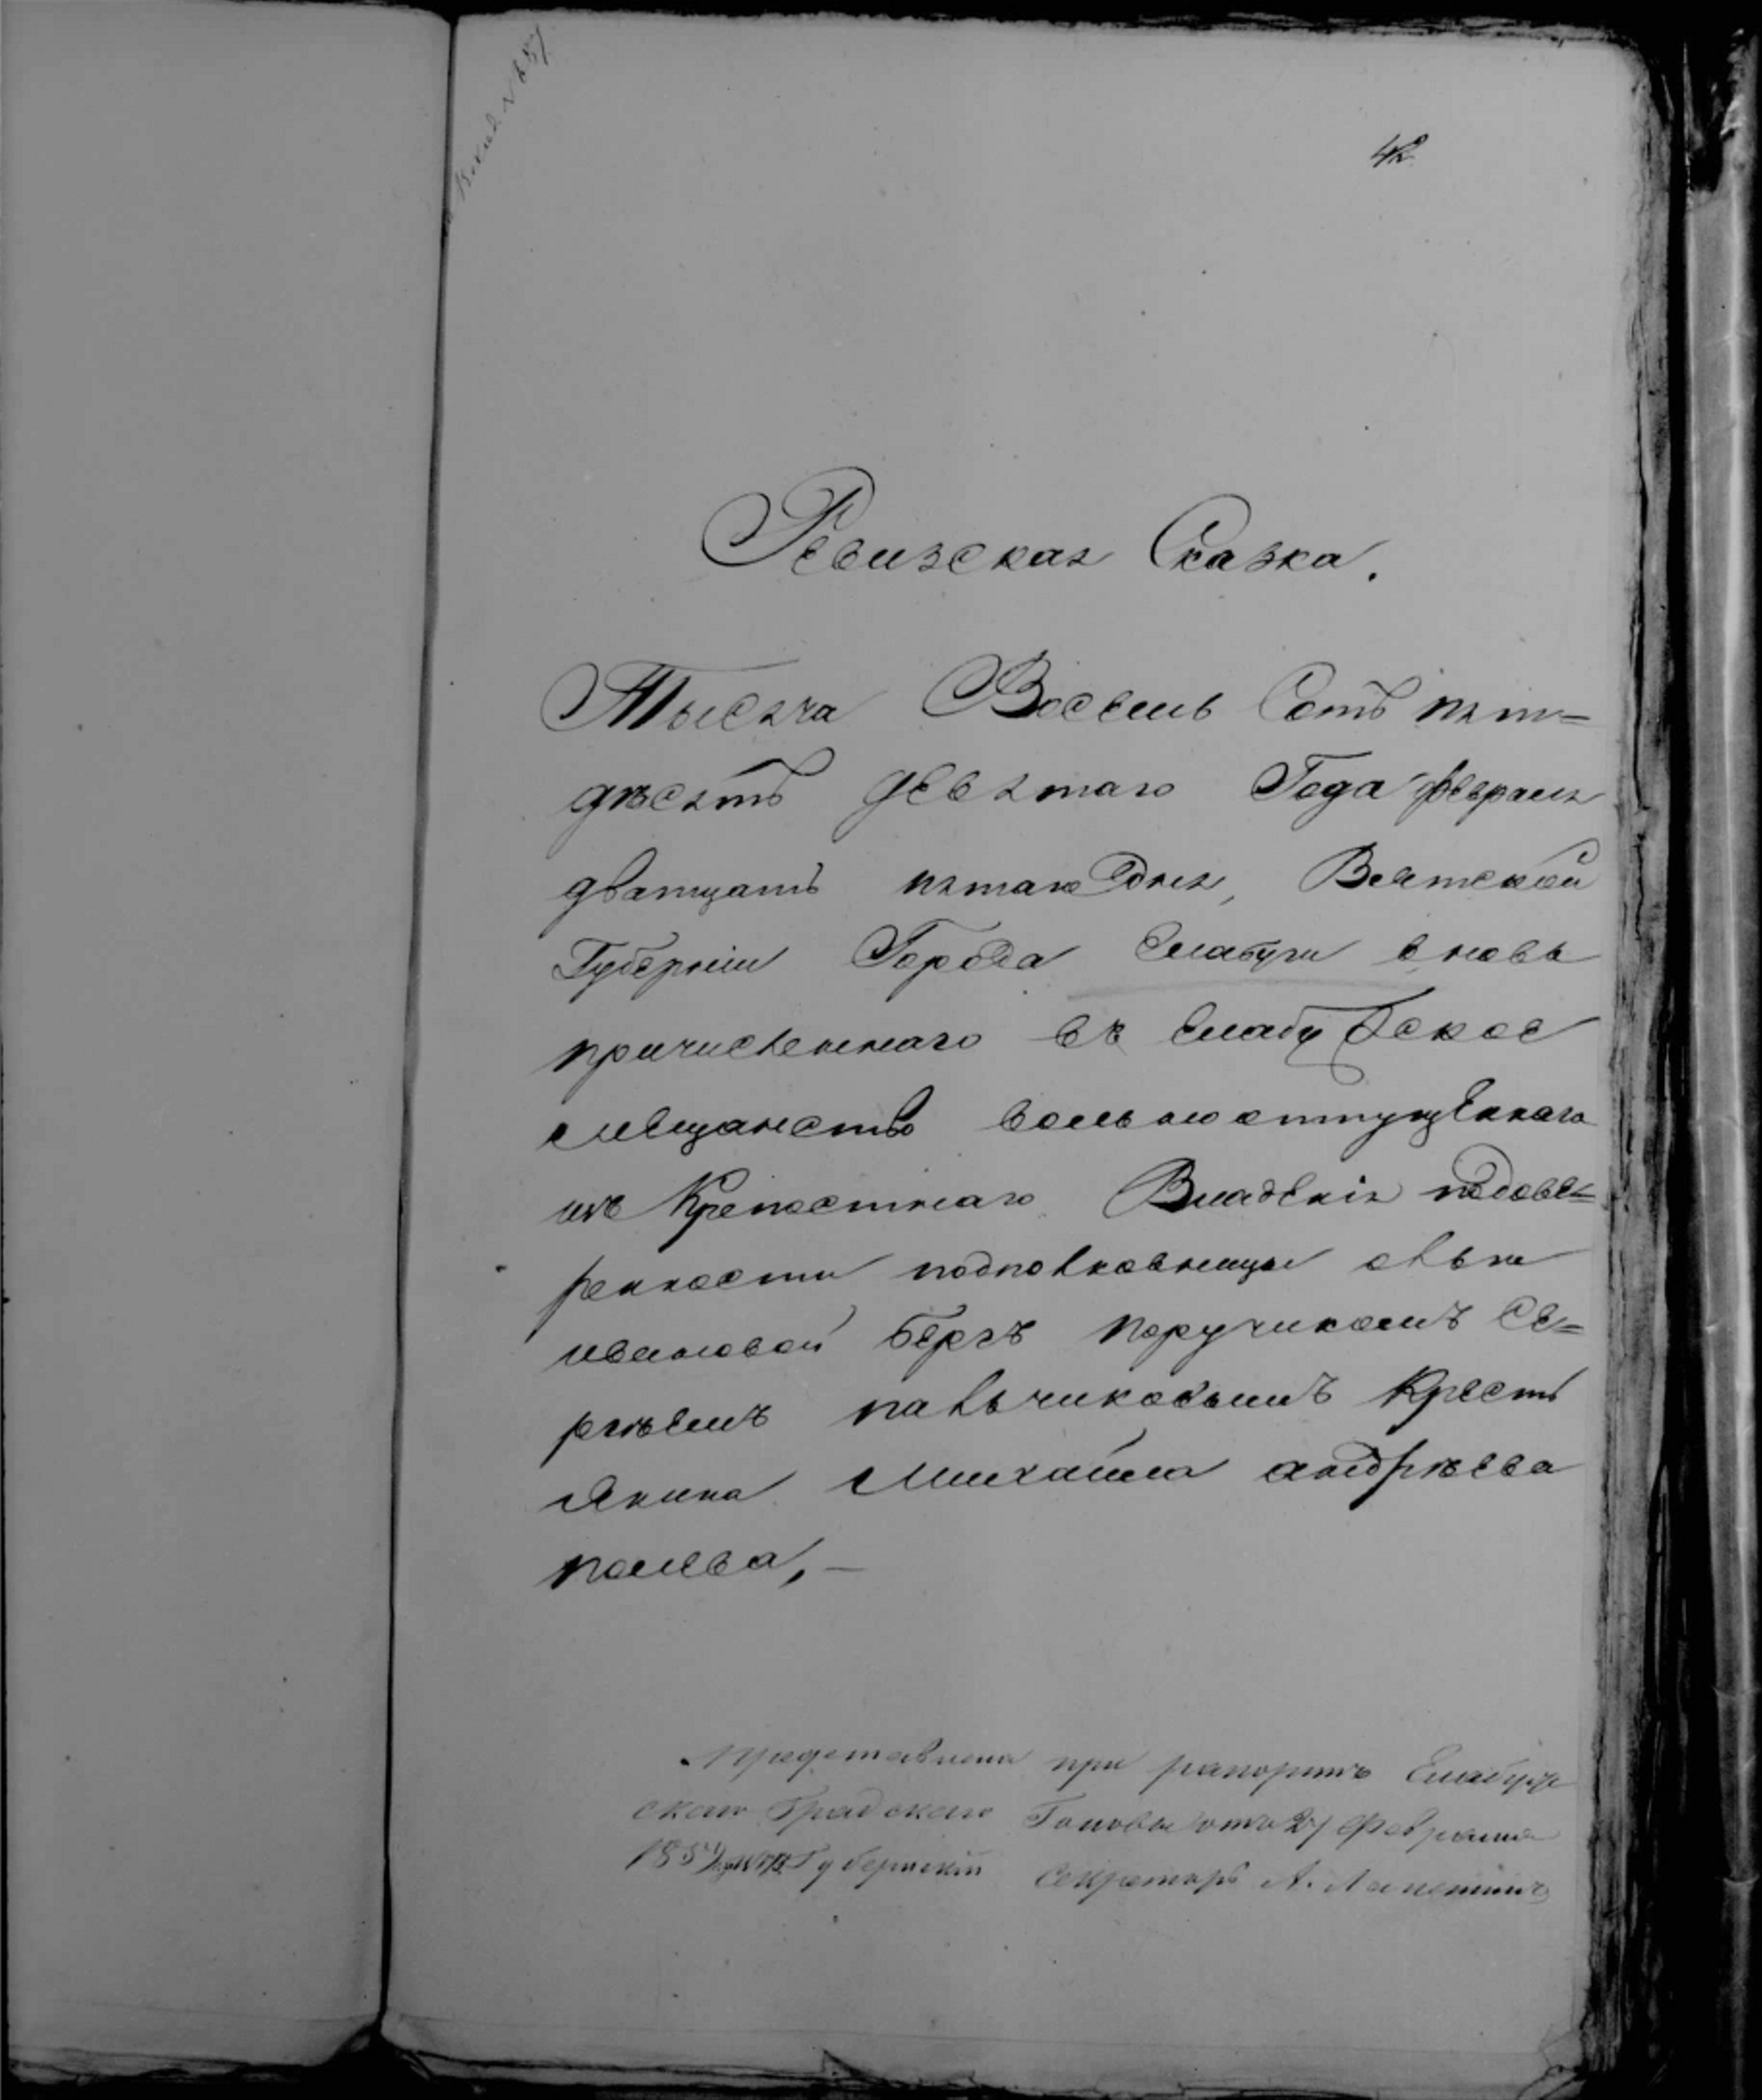 42
Ревизская Сказка.
Тысяча Восемь Сотъ пят=
дѣсятъ девятаго Года февраля
дватцать пятаго дня, Вятской
Губерніи Города Елабуги вновь
причисленнаго въ Елабуское
мещанство вольноотпущеннаго
изъ Крепостнаго Владенія подове=
ренности подполковницы ольги
ивановой Бергъ поручикомъ Се=
ргѣемъ пальчиковымъ Кресть
янина Михайла андрѣева
помева, —
Представлена при рапортѣ Елабуж
скаго Градскаго Головы отъ 27 Февраля
1859 Губернскій Секретарь А.